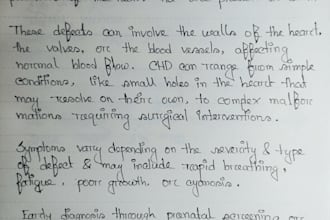 These defects can involve the walls of the heart,
the valves, or the blood vessels, affecting
normal blood flow. CHD can range from simple
conditions, like small holes in the heart that
may resolve on their own, to complex malfor
mations requiring surgical interventions.
Symptoms vary depending on the severity & type
of defect & may include rapid breathing,
fatigue, poor growth, or cyanosis.
Early diagnosis through prenatal screening or